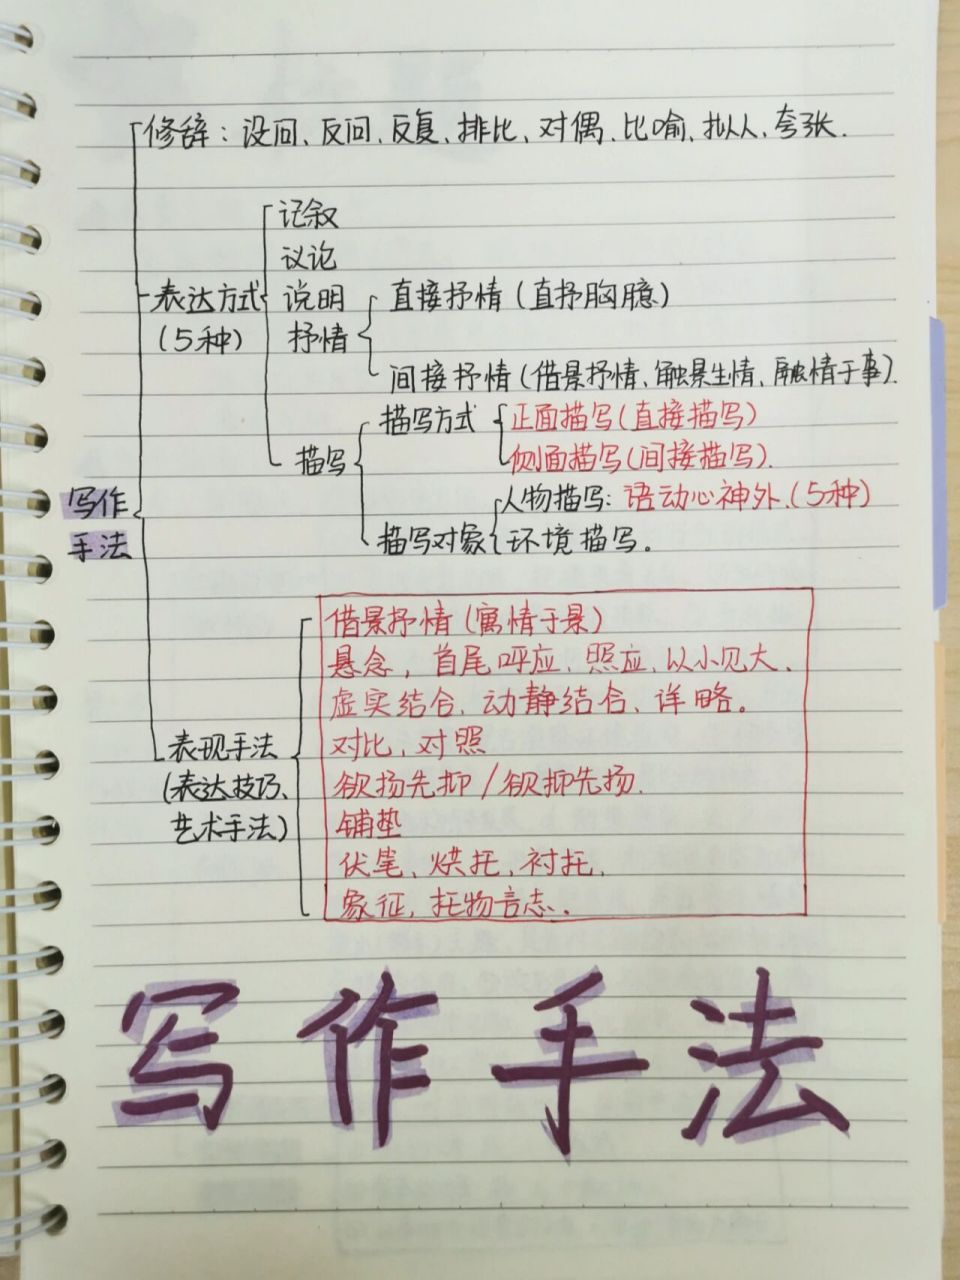 修辞：设问、反问、反复、排比、对偶、比喻、拟人、夸张.
记叙
议论
表达方式
(5种)
说明
抒情
直接抒情(直抒胸臆)
间接抒情(借景抒情、触景生情、融情于事).
描写
描写方式
正面描写(直接描写)
侧面描写(间接描写).
描写对象
人物描写：语动心神外.(5种)
环境描写。
写作
手法
表现手法
(表达技巧、
艺术手法)
借景抒情(寓情于景)
悬念，首尾呼应、照应、以小见大、
虚实结合、动静结合、详略。
对比、对照
欲扬先抑/欲抑先扬.
铺垫
伏笔、烘托、衬托、
象征，托物言志.
写作手法